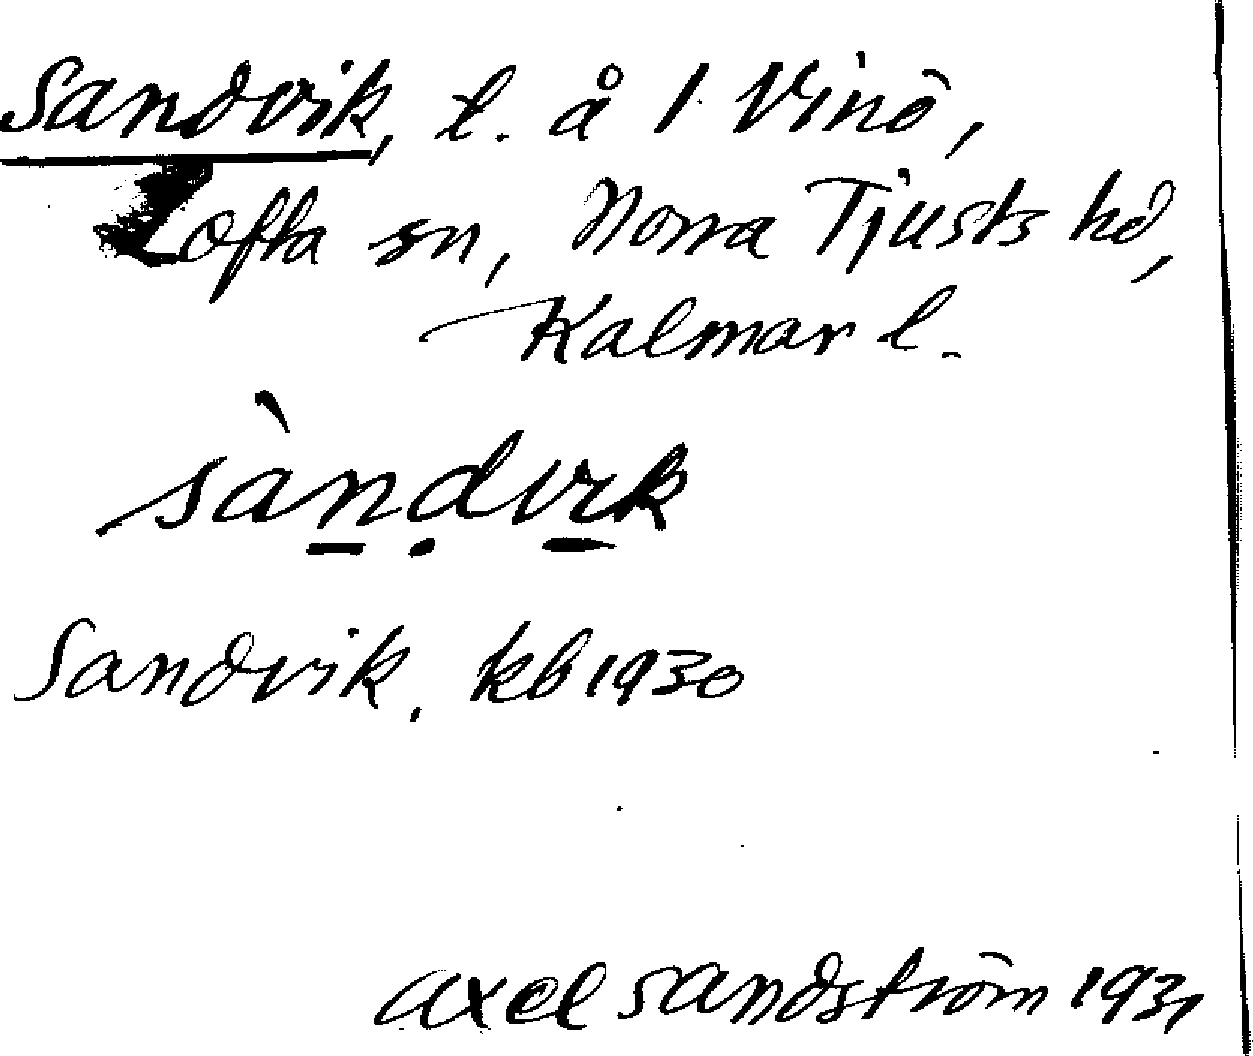 Sandvik, l. å 1 Vinö,
Lofta sn, Norra Tjusts hd,
Kalmar l.
sàndvik
Sandvik, kb 1930
Axel Sandström 1931